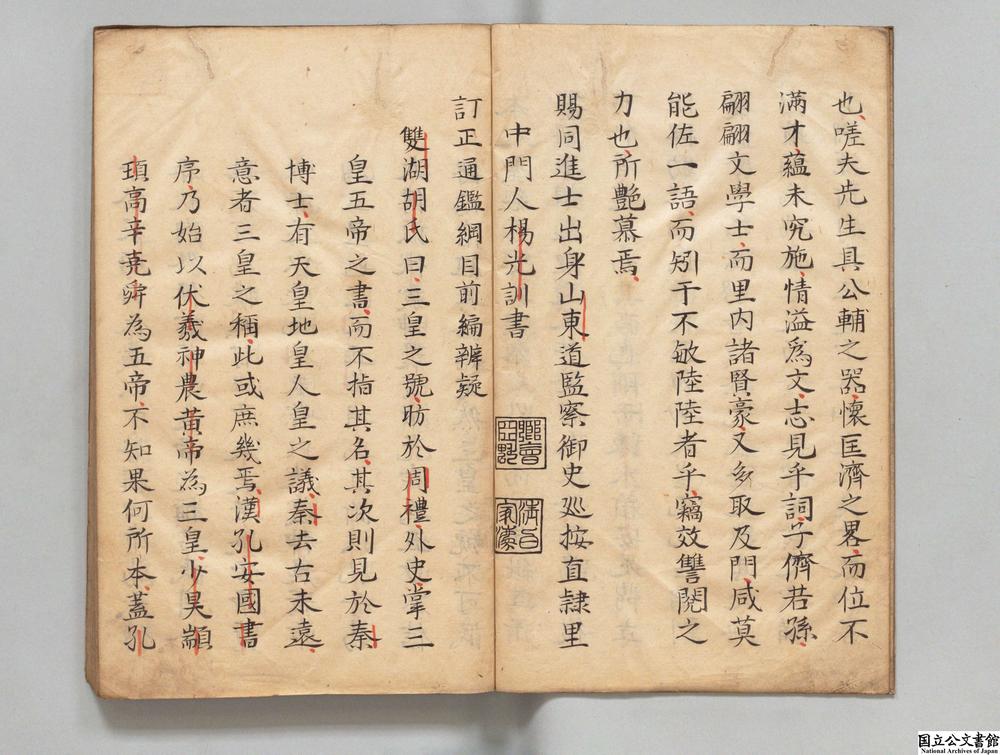 也嗟夫先生具公輔之器懷匡濟之畧而位不
滿才蘊未究施情溢爲文志見乎詞子儕若孫
翩翩文學士而里内諸賢豪又多取及門咸莫
能佐一語而矧于不敏陸陸者乎竊效讐閱之
力也所艷慕焉
賜同進士出身山東道監察御史廵按直隷里
中門人楊光訓書
訂正通鑑綱目前編辨疑
雙湖胡氏曰三皇之號昉於周禮外史掌三
皇五帝之書而不指其名其次則見於秦
博士有天皇地皇人皇之議秦去古未遠
意者三皇之稱此或庶幾焉漢孔安國書
序乃始以伏羲神農黄帝為三皇少昊顓
頊高辛堯舜為五帝不知果何所本蓋孔
国立公文書館
National Archives of Japan